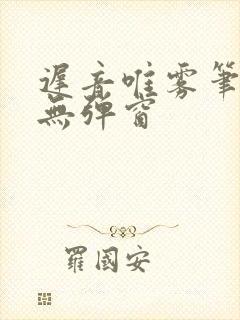 遲音唯雾筆
無弹窗
羅國安